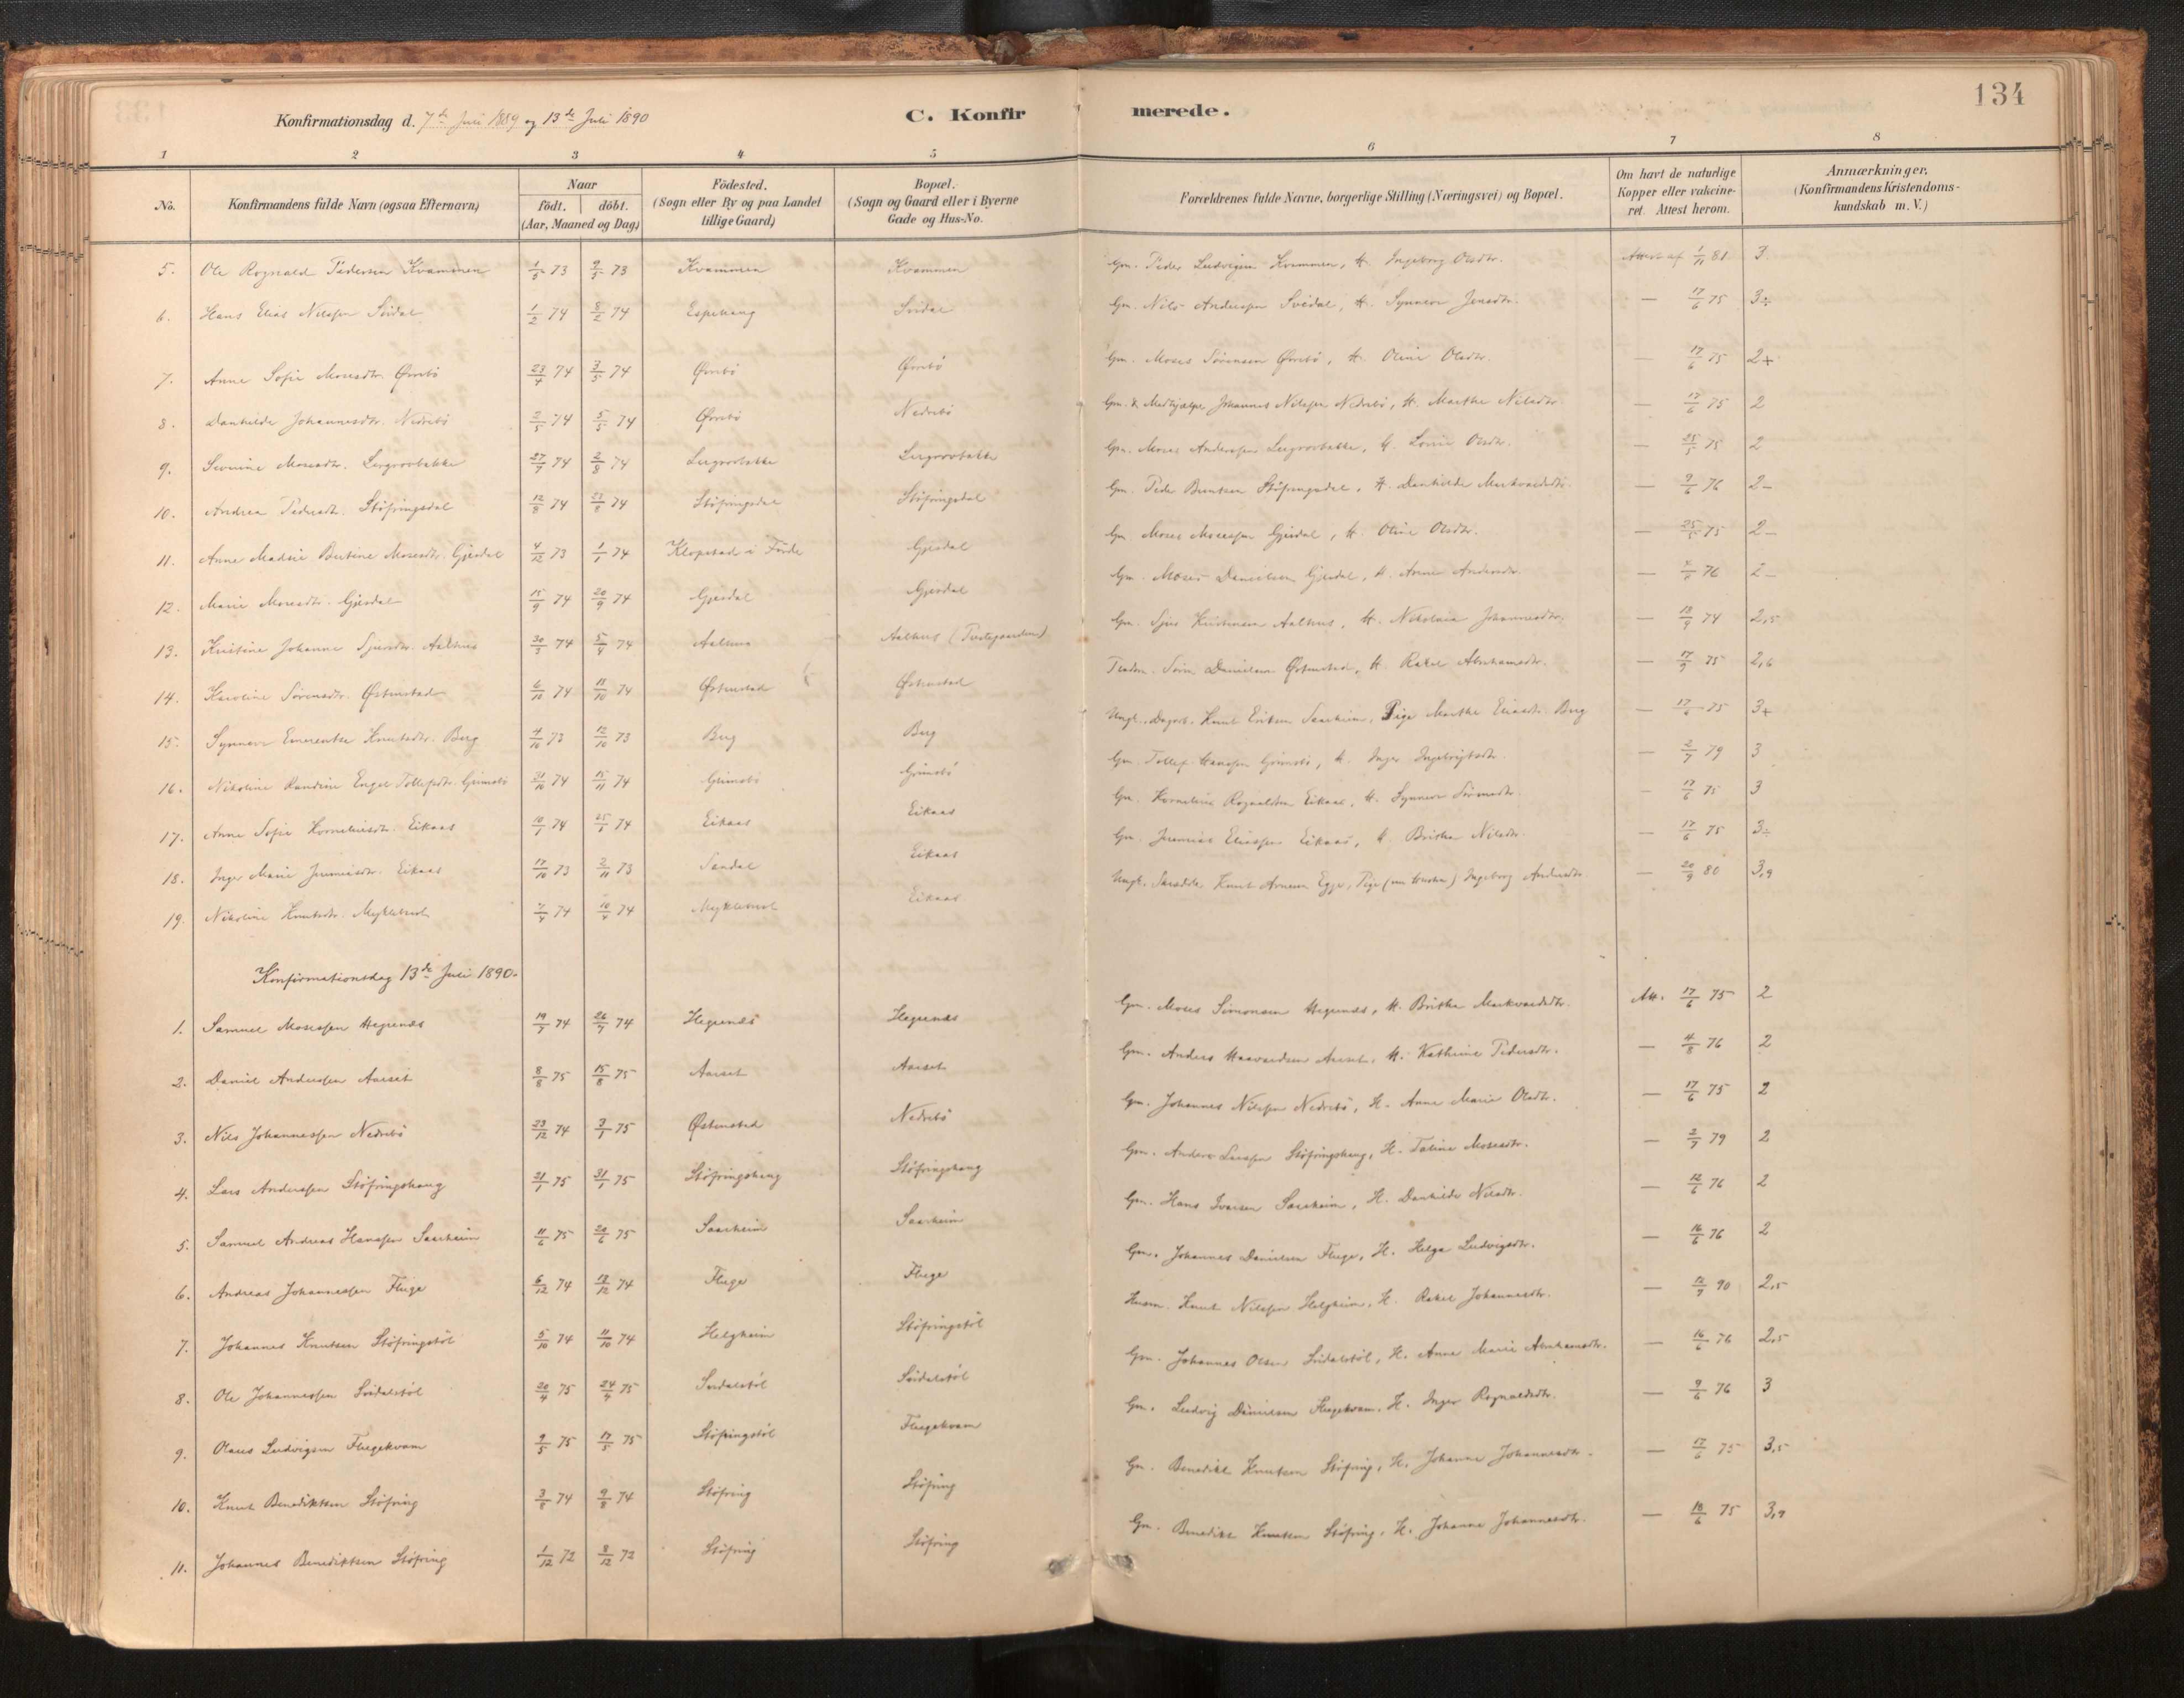 134
Konfirmationsdag d. 7de Juli 1889 og 13de Juli 1890
C. Konfirmerede.
1 2 3 4 5 6 7 8
No. Konfirmandens fulde Navn (ogsaa Efternavn) Naar födt. döbt. (Aar, Maaned og Dag) Födested. (Sogn eller By og paa Landet tillige Gaard) Bopæl. (Sogn og Gaard eller i Byerne Gade og Hus-No. Forældrenes fulde Navne, borgerlige Stilling (Næringsvei) og Bopæl. Om havt de naturlige Kopper eller vakcineret. Attest herom. Anmærkninger. (Konfirmandens Kristendomskundskab m. V.)
5. Ole Rognald Pedersen Kvammen 1/5 73 9/5 73 Kvammen Kvammen Gm. Peder Ludvigsen Kvammen, H. Ingeborg Olsdtr. Attest af 1/11 81 3
6. Hans Elias Nilssen Svidal 1/2 74 8/2 74 Espehaug Svidal Gm. Nils Anderssen Svidal, H. Synneve Jensdtr. — 17/6 75 3÷
7. Anne Sofie Mosesdtr. Övrebö 23/4 74 3/5 74 Övrebö Övrebö Gm. Moses Sörensen Övrebö, H. Oline Olsdtr. — 17/6 75 2+
8. Danhilde Johannesdtr. Nedrebö 2/5 74 5/5 74 Övrebö Nedrebö Gm. & Medhjælper Johannes Nilssen Nedrebö, H. Marthe Nilsdtr. — 17/6 75 2
9. Severine Mosesdtr. Lergrovbakke 27/7 74 2/8 74 Lergrovbakke Lergrovbakke Gm. Moses Anderssen Lergrovbakke, H. Lovise Olsdtr. — 25/5 75 2
10. Andrea Pedersdtr. Stöfringsdal 12/8 74 23/8 74 Stöfringsdal Stöfringsdal Gm. Peder Stöfringsdal, H. Danhilde Markvardsdtr. — 9/6 76 2-
11. Anne Madsine Bertine Mosesdtr. Gjesdal 4/12 73 1/1 74 Klopstad i Förde Gjesdal Gm. Moses Mosessen Gjesdal, H. Oline Olsdtr. — 25/5 75 2-
12. Marie Mosesdtr. Gjesdal 15/9 74 20/9 74 Gjesdal Gjesdal Gm. Moses Danielsen Gjesdal, H. Anne Andersdtr. — 76 2-
13. Kristine Johanne Sjursdtr. Aalhus 30/3 74 5/4 74 Aalhus Aalhus (Prestegaarden) Gm. Sjur Kristensen Aalhus, H. Nikolaia Johannesdtr. — 18/9 74 2,5
14. Karoline Sörensdtr. Östenstad 6/10 74 18/10 74 Östenstad Östenstad Sören Danielsen Östenstad, H. Rakel Abrahamsdtr. — 17/9 75 2,6
15. Synneve Emerentse Knutsdtr. Berg 4/10 73 12/10 73 Berg Berg Ungk. Dagarb. Knut Eriksen Saarheim, Pige Marthe Eliasdtr. Berg — 17/6 75 3+
16. Nikoline Randine Engel Tollefsdtr. Grimsbö 31/10 74 15/11 74 Grimsbö Grimsbö Gm. Tollef Hanssen Grimsbö, H. Inger Ingebrigtsdtr. — 2/7 79 3
17. Anne Sofie Korneliusdtr. Eikaas 10/1 74 25/1 74 Eikaas Eikaas Gm. Kornelius Rognaldsen Eikaas, H. Synneve Sörensdtr. — 17/6 75 3
18. Inger Marie Jeremiasdtr. Eikaas 17/10 73 2/11 73 Sandal Eikaas Gm. Jeremias Eliassen Eikaas, H. Brithe Nilsdtr. — 17/6 75 3÷
19. Nikoline Knutsdtr. Myklebust 7/4 74 10/4 74 Myklebust Eikaas Ungk. Knut Arnesen Egge, Pige Ingeborg Andersdtr. — 20/9 80 3,9
Konfirmationsdag 13de Juli 1890.
1. Samuel Mosessen Hegrenæs 19/7 74 26/7 74 Hegrenæs Hegrenæs Gm. Moses Simonsen Hegrenæs, H. Brithe Markvardsdtr. Att. 17/6 75 2
2. Daniel Anderssen Aarset 8/8 75 15/8 75 Aarset Aarset Gm. Anders Haavardsen Aarset, H. Kathrine Pedersdtr. — 4/8 76 2
3. Nils Johannessen Nedrebö 23/12 74 3/1 75 Östenstad Nedrebö Gm. Johannes Nilssen Nedrebö, H. Anne Marie Olsdtr. — 17/6 75 2
4. Lars Anderssen Stöfringshaug 21/1 75 31/1 75 Stöfringshaug Stöfringshaug Gm. Anders Larssen Stöfringshaug, H. Taline Mosesdtr. — 2/7 79 2
5. Samuel Andreas Hanssen Saarheim 11/6 75 20/6 75 Saarheim Saarheim Gm. Hans Ivarsen Saarheim, H. Danhilde Nilsdtr. — 12/6 76 2
6. Andreas Johannessen Fluge 6/12 74 13/12 74 Fluge Fluge Gm. Johannes Danielsen Fluge, H. Helga Ludvigsdtr. — 16/6 76 2
7. Johannes Knutsen Stöfringstöl 5/10 74 11/10 74 Helgheim Stöfringstöl Husm. Knut Nilssen Helgheim, H. Rakel Johannesdtr. — 12/7 90 2,5
8. Ole Johannessen Svidalstöl 20/4 75 24/4 75 Svidalstöl Svidalstöl Gm. Johannes Olsen Svidalstöl, H. Anne Marie Abrahamsdtr. — 16/6 76 2,5
9. Olaus Ludvigsen Flugekvam 9/5 75 17/5 75 Stöfringstöl Flugekvam Gm. Ludvig Danielsen Flugekvam, H. Inger Rognaldsdtr. — 9/6 76 3
10. Knut Benediktsen Stöfring 3/8 74 9/8 74 Stöfring Stöfring Gm. Benedikt Knutsen Stöfring, H. Johanne Johannesdtr. — 17/6 75 3,5
11. Johannes Benediktsen Stöfring 1/12 72 8/12 72 Stöfring Stöfring Gm. Benedikt Knutsen Stöfring, H. Johanne Johannesdtr. — 18/6 75 3,9